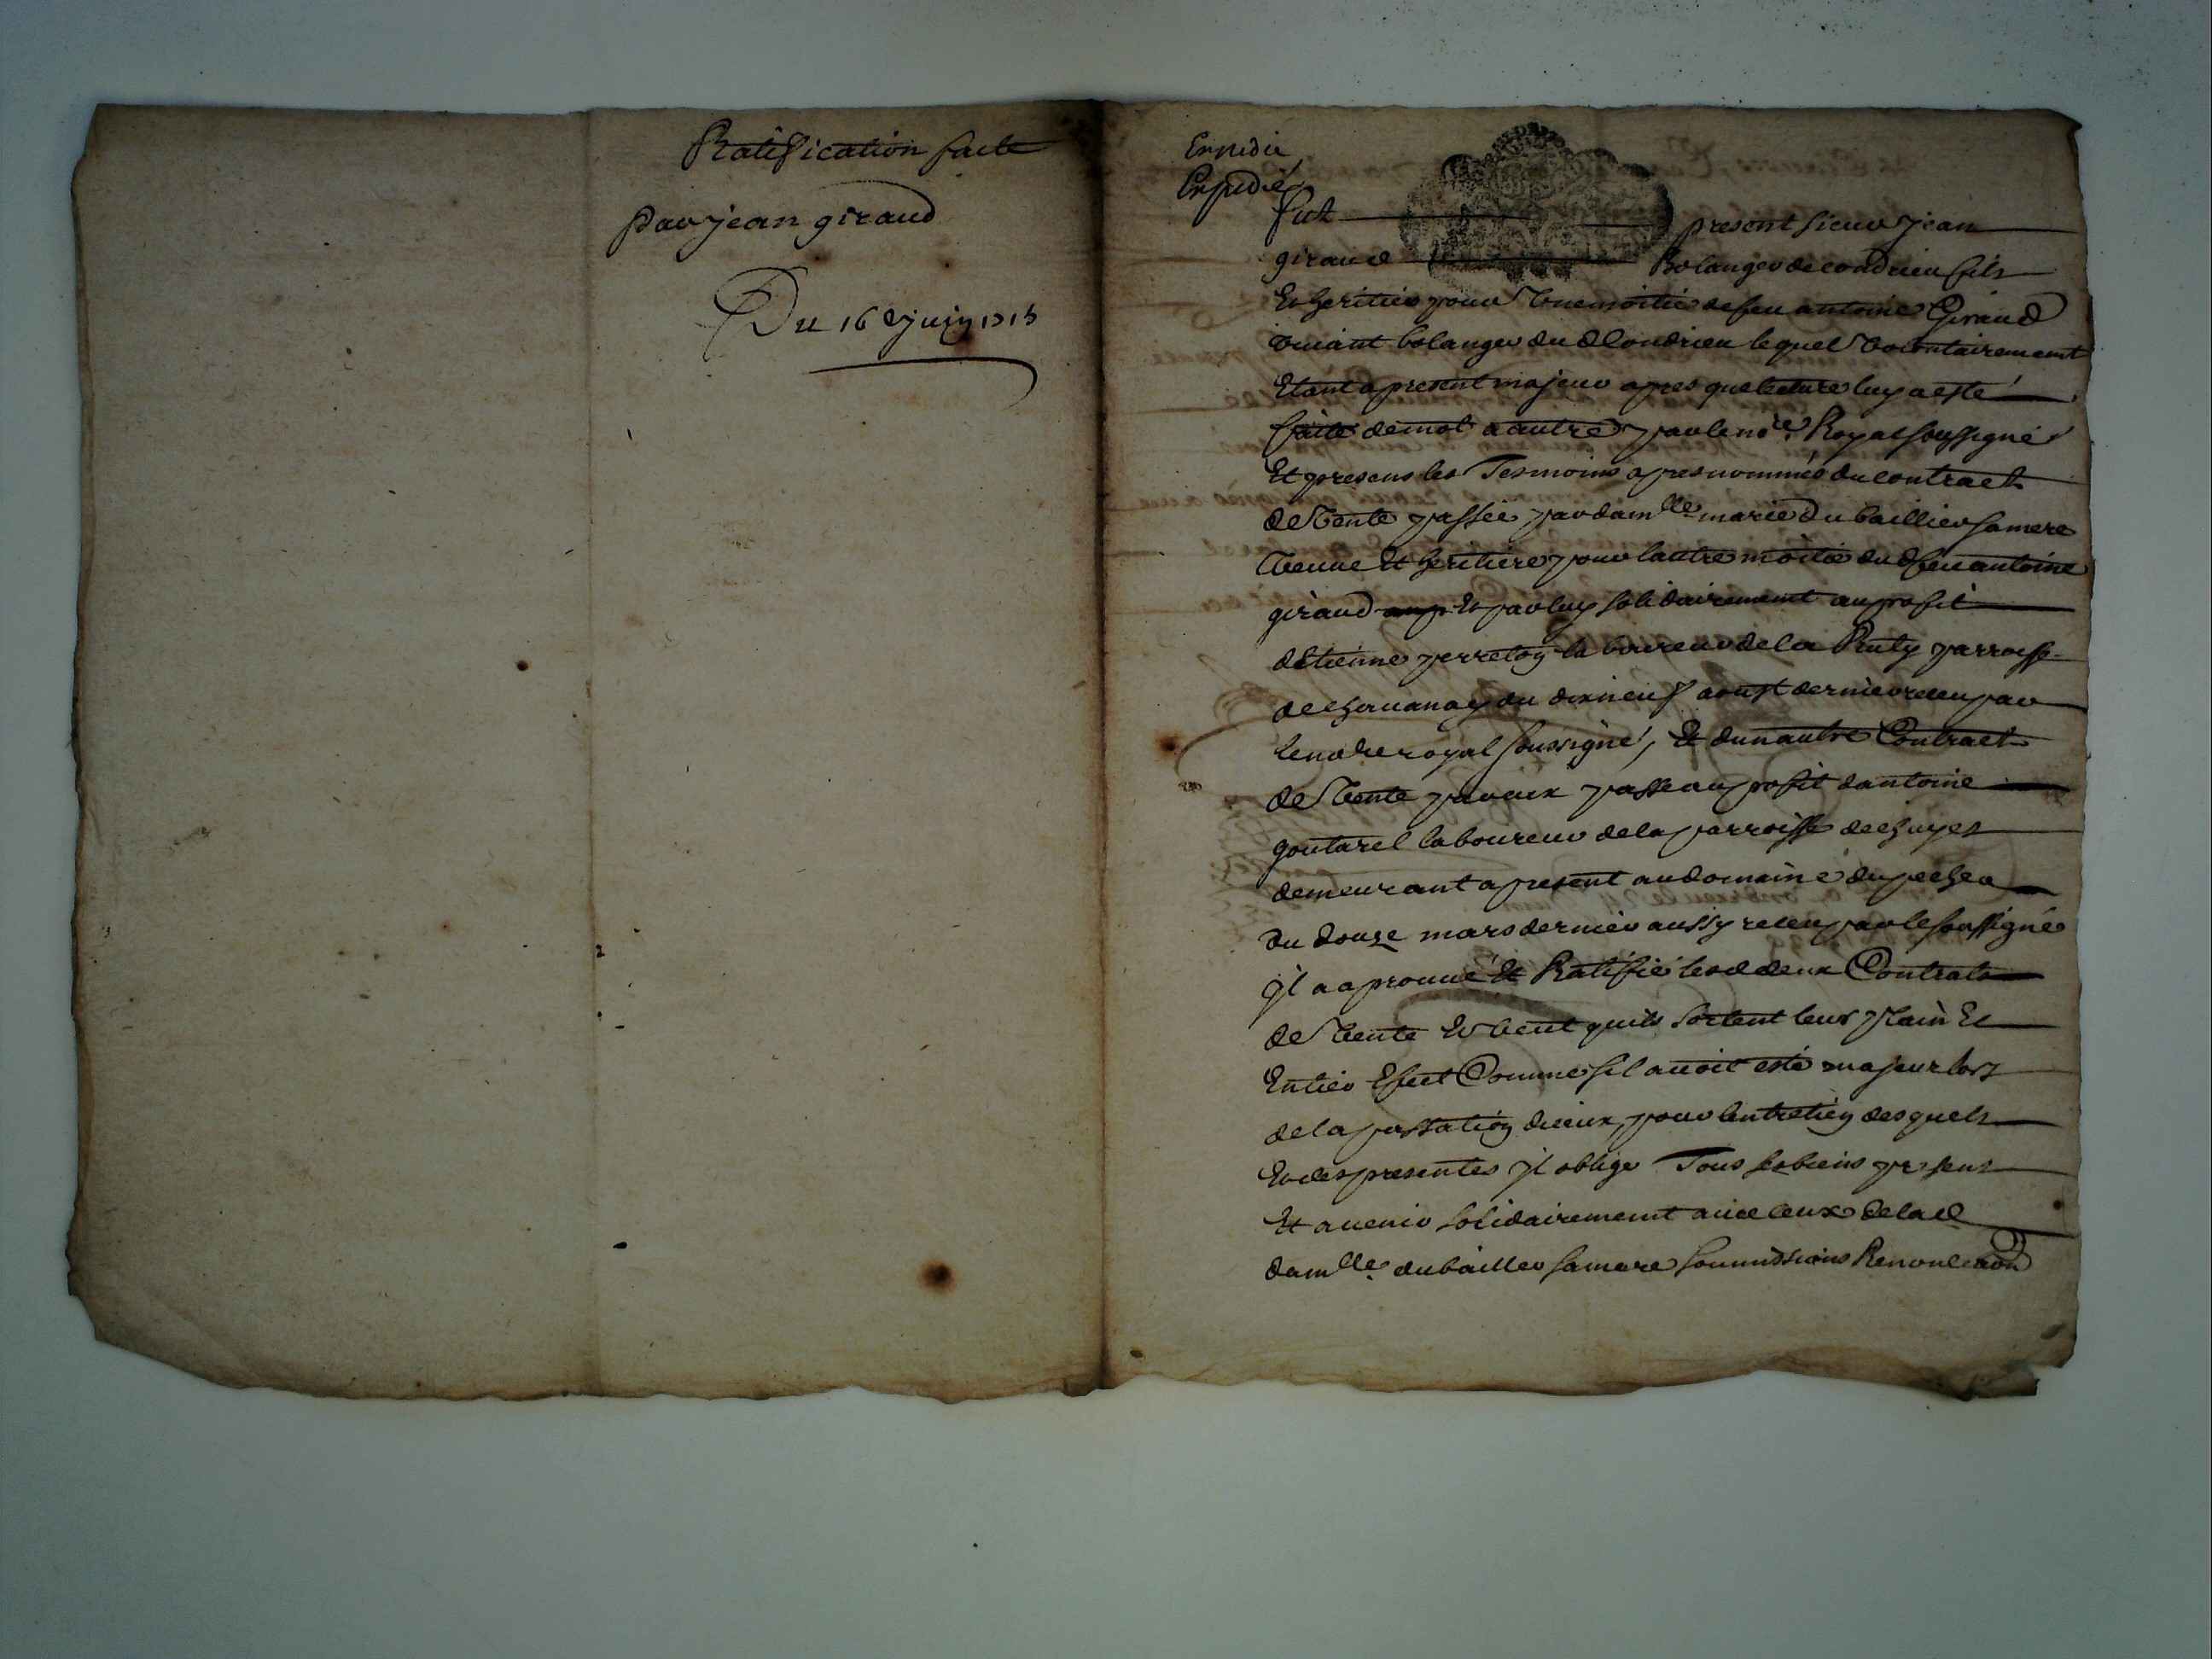 Ratification faite
par jean giraud
Du 16e juin 1715
Expedié
Expedié
fut present sieur jean
giraud Bolanger de condrieu fils
Et heritier pour une moitié de feu antoine Giraud
vivant bolanger dud Condrieu lequel volontairement
Etant a present majeur apres que lecture luy a esté
faite de mot a autre par le nore Royal soussigné
Et presens les Tesmoins apres nommés du contract
de Vente passée par damlle marie Du baillier sa mere
Veuve Et heritiere pour lautre moitié dud feu antoine
giraud Et par luy solidairement au profit
détienne perreton laboureur de la parroisse
de chavanay du dixneuf aoust dernier receu par
le nore royal soussigné, Et dun autre Contract
de Vente par eux passé au profit dantoine
goutarel laboureur de la parroisse de chuyes
demeurant a present au domaine du
du douze mars dernier aussy receu par le soussigné
Jl a aprouvé Et Ratifié lesd deux Contrats
de Vente Et veut quils sortent leur plain Et
Entier Efect Comme sil avoit esté majeur lors
de la passation diceux, pour lentretien desquels
Et des presentes jl oblige Tous ses biens presens
Et avenir solidairement avec ceux de lad
damlle dubailler sa mere soumissions Renonciaon